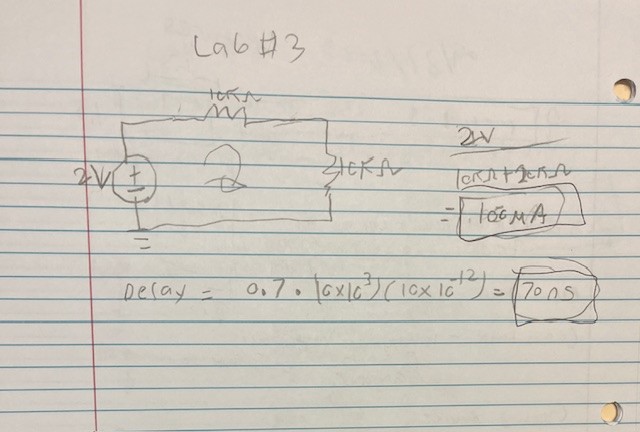 Lab #3
10KΩ
2V
+
10KΩ
2V
10KΩ+10KΩ
= .100MA
Delay = 0.7 · 10x10^3)(10x10^-12) = 70ns